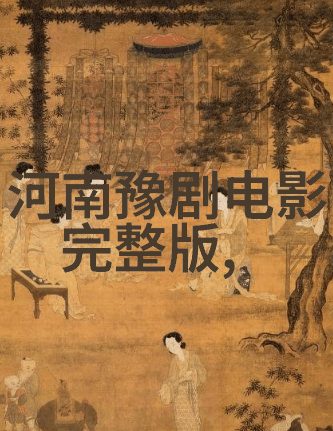 河南豫剧电影
完整版,